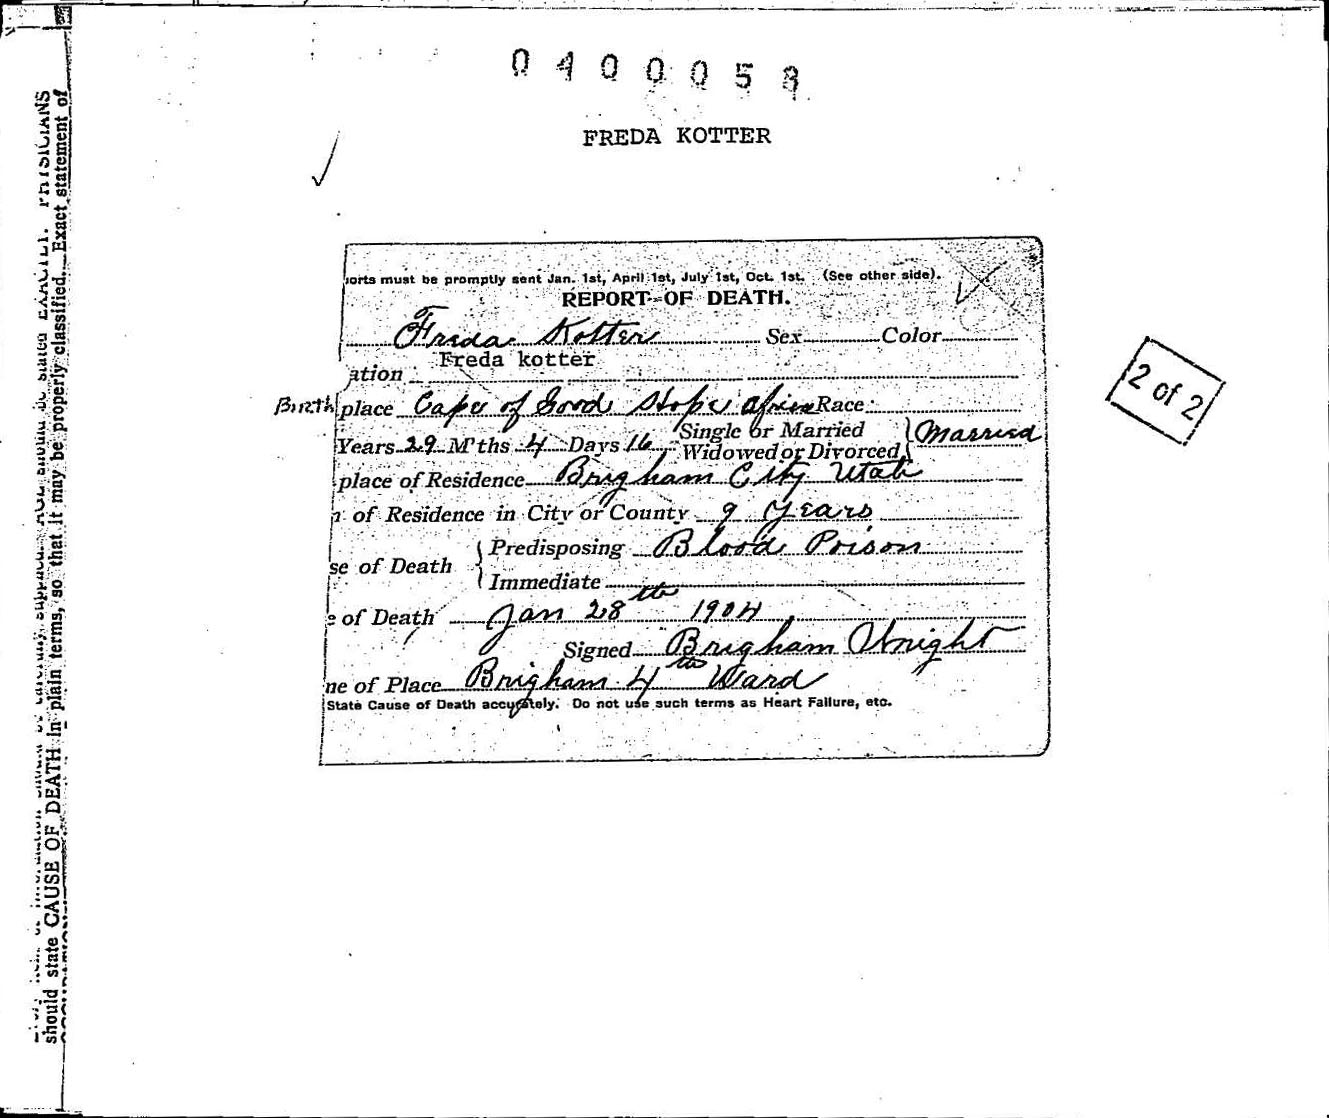 0400058
FREDA KOTTER
orts must be promptly sent Jan. 1st, April 1st, July 1st, Oct. 1st. (See other side).
REPORT OF DEATH.
Freda Kotter Sex Color
Freda kotter
ation
Birthplace Cape of Good Hope Africa Race
Years 29 M'ths 4 Days 16 Single or Married Widowed or Divorced Married
place of Residence Brigham City Utah
of Residence in City or County 9 Years
se of Death Predisposing Blood Poison
Immediate
of Death Jan 28th 1904
Signed Brigham Wright
ne of Place Brigham 4th Ward
State Cause of Death accurately. Do not use such terms as Heart Failure, etc.
2 of 2
EXACTLY. PHYSICIANS
should state CAUSE OF DEATH in plain terms, so that it may be properly classified. Exact statement of